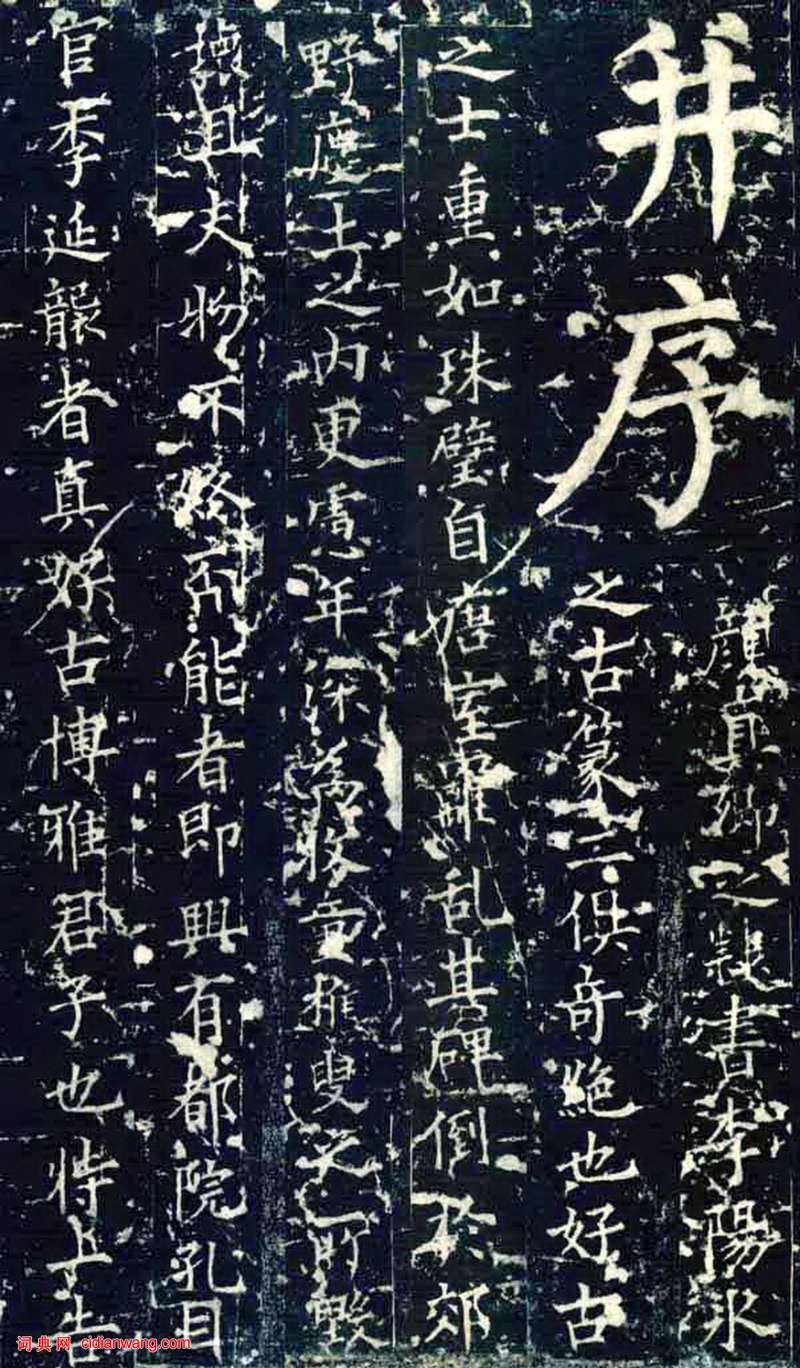 并序
顔真卿之隸書李陽氷
之古篆二俱奇絶也好古
之士重如珠璧自唐室離乱其碑倒於郊
野塵土之内更慮年深為牧童樵叟之所毀
壞且夫物不終否能者即興有都院孔目
官李延襲者真好古博雅君子也特上告
词典网 cidianwang.com